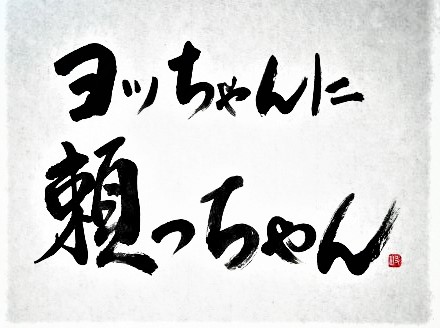 ヨッちゃんに
頼っちゃん